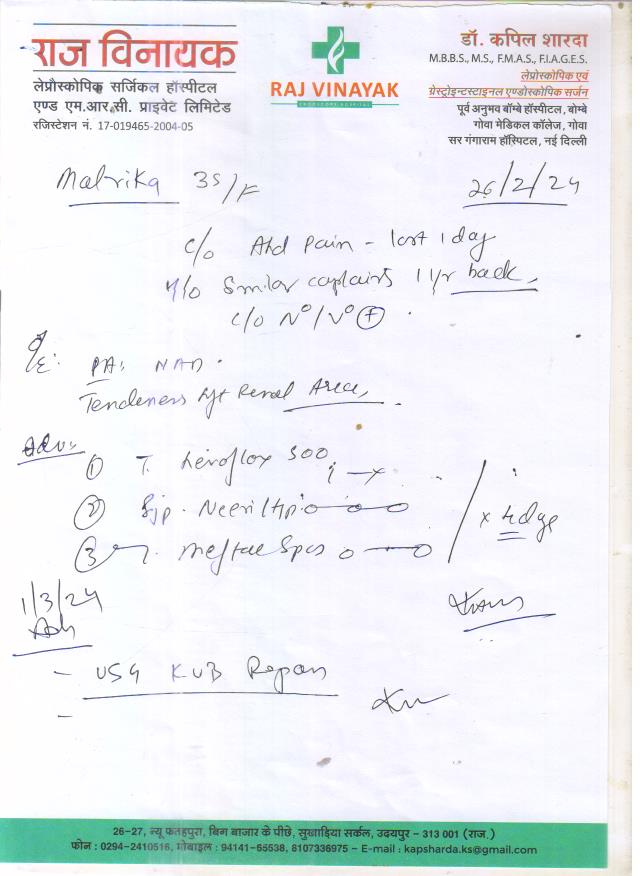 राज विनायक
लेप्रौस्कोपिक सर्जिकल हॉस्पीटल
एण्ड एम.आर.सी. प्राइवेट लिमिटेड
रजिस्टेशन नं. 17-019465-2004-05
RAJ VINAYAK
ENDOSCOPY HOSPITAL
डॉ. कपिल शारदा
M.B.B.S., M.S., F.M.A.S., F.I.A.G.E.S.
लेप्रोस्कोपिक एवं
गेस्ट्रोइन्टस्टाइनल एण्डोस्कोपिक सर्जन
पूर्व अनुभव बॉम्बे हॉस्पीटल, बोम्बे
गोवा मेडिकल कॉलेज, गोवा
सर गंगाराम हॉस्पिटल, नई दिल्ली
35/F 26/2/24
c/o Abd Pain - last 1 day
H/o Similar complaints 1 yr back,
c/o N°/V° +
O/E: PA: NAD.
Tenderness Renal Area,
Adv:
1 T. 500
2 Syp. Neeri
3 T. Meftal Spas
x 4 days
1/3/24
Adv
- USG KUB Repeat
-
26-27, न्यू फतहपुरा, बिग बाजार के पीछे, सुखाड़िया सर्कल, उदयपुर - 313 001 (राज.)
फोन : 0294-2410516, मोबाइल : 94141-65538, 8107336975 - E-mail : kapsharda.ks@gmail.com